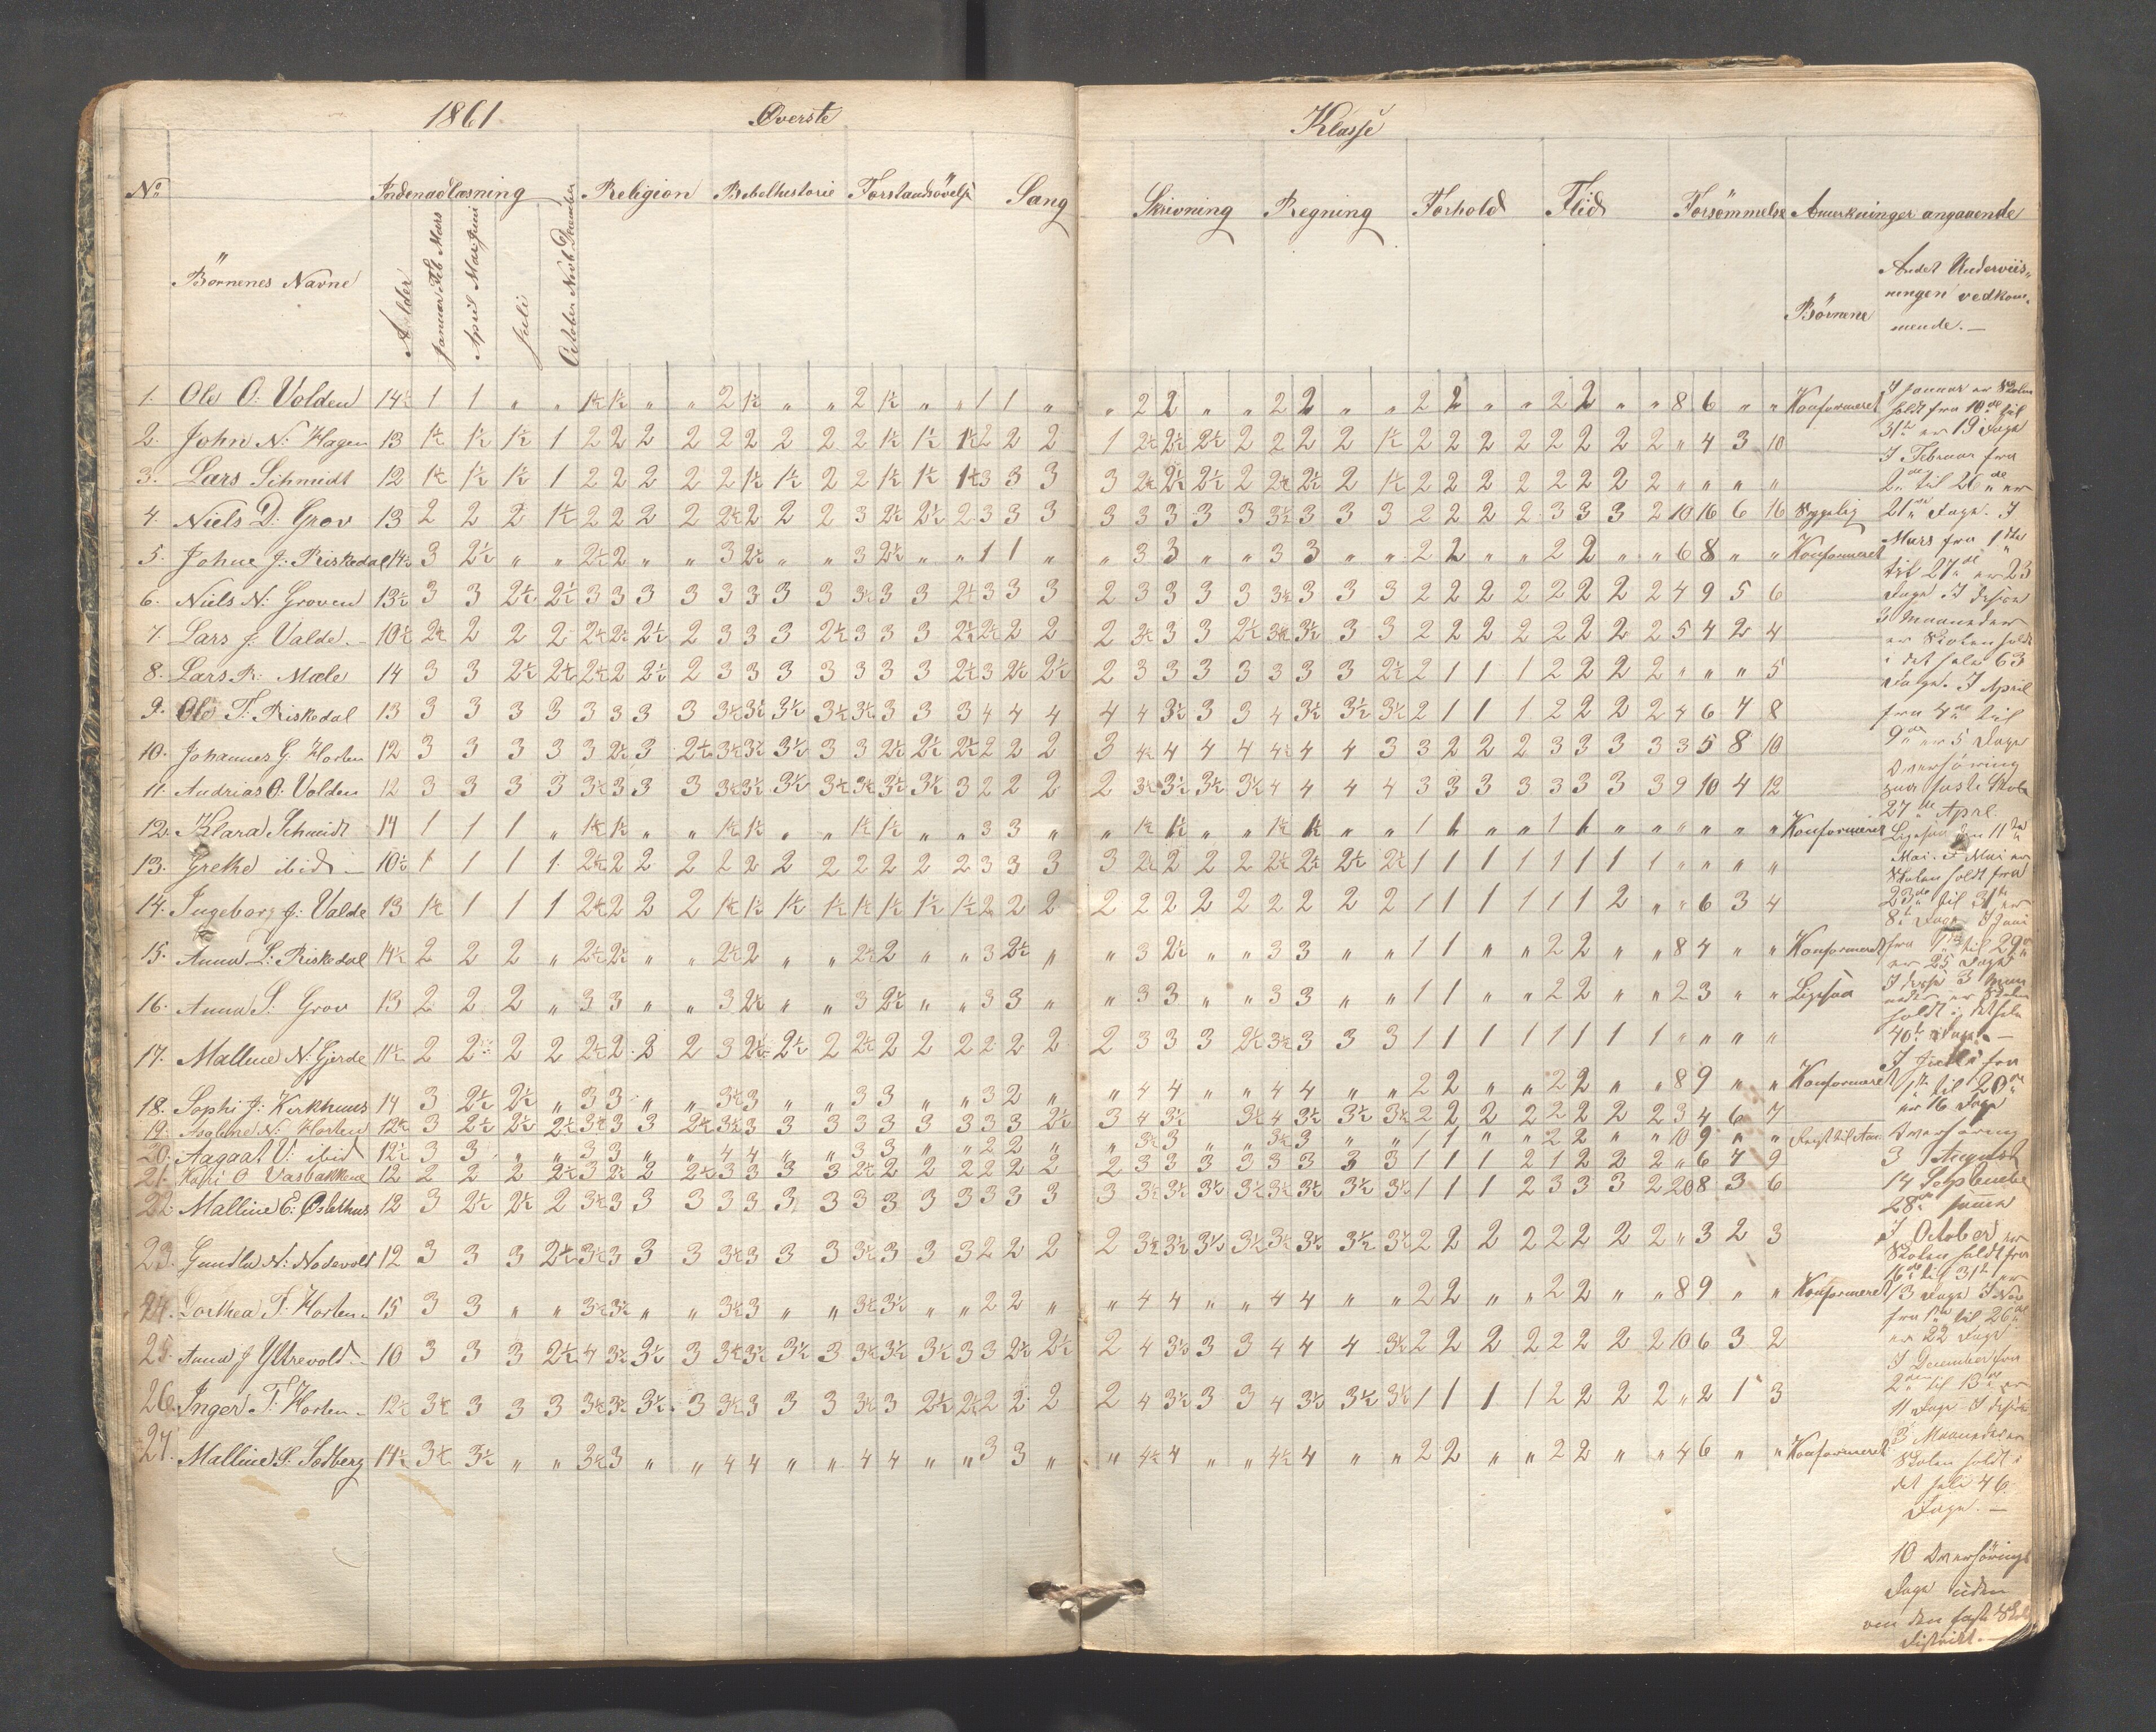 1861 Överste Klasse
No Börnenes Navne Alder Indenadlæsning Religion Bibelhistorie Forstandsövelse Sang Skrivning Regning Forhold Flid Forsömmelse Anmerkninger angaaende
Januar Feb Mars
April Mai Juni
Juli
October Novb. December
Börnene
Andet Underviis-
ningen vedkom-
mende. —
1. Ole O: Volden 14½ 1 1 " " 1½ 1½ " " 2 1½ " " 2 1½ " " 1 1 " " 2 2 " " 2 2 " " 2 2 " " 2 2 " " 8 6 " " Konfirmeret
2. John N: Hagen 13 1½ 1½ 1½ 1 2 2 2 2 2 2 2 2 2 1½ 1½ 1½ 2 2 2 1 2½ 2½ 2½ 2 2 2 2 1½ 2 2 2 2 2 2 2 2 " 4 3 10
3. Lars Schmidt 12 1½ 1½ 1½ 1 2 2 2 2 2 1½ 1½ 2 2 1½ 1½ 1½ 3 3 3 3 2½ 2½ 2½ 2 2½ 2½ 2 1½ 2 2 2 2 2 2 2 2 " " " "
4. Niels D: Grov 13 2 2 2 1½ 2 2 2 2 2½ 2 2 2 3 2½ 2½ 2 3 3 3 3 3 3 3 3 3½ 3 3 3 2 2 2 2 3 3 3 2 10 16 6 16 Sygelig
5. Johne J: Riskedal 14½ 3 2½ " " 2½ 2 " " 3 2½ " " 3 2½ " " 1 1 " " 3 3 " " 3 3 " " 2 2 " " 2 2 " " 6 8 " " Konfirmeret
6. Niels N: Groven 13½ 3 3 2½ 2½ 3 3 3 3 3 3 3 3 3½ 3 3 2½ 3 3 3 2 3 3 3 3 3½ 3 3 3 2 2 2 2 2 2 2 2 4 9 5 6
7. Lars J: Valde 10½ 2½ 2 2 2 2½ 2½ 2½ 2 3 3 3 2½ 3 3 3 2½ 2½ 2 2 2 3½ 3 3 2½ 3½ 3½ 3 3 2 2 2 2 2 2 2 2 5 4 2 4
8. Lars R: Mæle 14 3 3 2½ 2½ 2½ 2 2½ 2 3 3 3 3 3 3 3 2½ 3 2½ 2½ 2 3 3 3 3 3 3 3 2½ 2 1 1 1 2 2 2 2 " " " 5
9. Ole T: Riskedal 13 3 3 3 3 3 3 3 3 3½ 3½ 3½ 3½ 3½ 3 3 3 4 4 4 4 4 3½ 3 3 4 3½ 3½ 3½ 2 1 1 1 2 2 2 2 4 6 7 8
10. Johannes G. Horten 12 3 3 3 3 3 2½ 3 2½ 3½ 3½ 3½ 3 3 2½ 2½ 2½ 2 2 2 3 4½ 4 4 4 4½ 4 4 3 3 2 2 2 3 3 3 3 3 5 8 10
11. Andrias O: Volden 12 3 3 3 3 3½ 3 3 3 3½ 3½ 3½ 3½ 3½ 3½ 3½ 3 2 2 2 2 3½ 3½ 3½ 3½ 4 4 4 4 3 3 3 3 3 3 3 3 9 10 4 12
12. Klara Schmidt 14 1 1 1 " 1½ 1½ " " 1½ 1½ " " 1½ 1½ " " 3 3 " " 1½ 1½ " " 1½ 1 " " 1 1 " " 1 1 " " " " " " Konfirmeret
13. Grethe ibid — 10½ 1 1 1 1 2½ 2 2 2 2 2 2 2 2 2 2 2 3 3 3 3 2½ 2 2 2 2½ 2½ 2½ 2½ 1 1 1 1 1 1 1 1 " " " "
14. Ingeborg J: Valde 13 1½ 1 1 1 2½ 2 2 2 1½ 1½ 1½ 1½ 1½ 1½ 1½ 1½ 2 2 2 2 2 2 2 2 2 2 2 2 1 1 1 1 1 1 2 " " 6 3 4
15. Anna L: Riskedal 14½ 2 2 2 " 2½ 2½ " " 2½ 2 " " 2½ 2 " " 3 2½ " " 3 2½ " " 3 3 " " 1 1 " " 2 2 " " 8 4 " " Konfirmeret
16. Anna S. Grov 13 2 2 2 " 3 3 " " 3 2½ " " 3 2½ " " 3 3 " " 3 3 " " 3 3 " " 1 1 " " 2 2 " " 2 3 " " Ligesaa
17. Malline N: Gjerde 11½ 2 2 2 2 2½ 2 2 2 3 2½ 2½ 2 2½ 2 2 2 2 2 2 2 3 3 3 2½ 3½ 3 3 3 1 1 1 1 1 1 1 1 " " " "
18. Sophi J: Kirkhuus 14 3 2½ 2½ " 3 3 " " 3½ 3 " " 3 3 " " 3 2 " " 4 4 " " 4 4 " " 2 2 " " 2 2 " " 8 9 " " Konfirmeret
19. Asgline N: Horten 12½ 3 2½ 2½ 2½ 3½ 3 3 2½ 3½ 3 3 3 3 3 3 3 3 3 2½ 3 4 3½ 3½ 4 3½ 3½ 3½ 2 2 2 2 2 2 2 2 3 4 6 7
20. Aagaat V: ibid 12½ 3 3 " " 3 3 " " 4 4 " " 3 3 " " 2 2 " " 3½ 3 " " 3½ 3 " " 1 1 " " 2 2 " " 10 9 " "
21. Kari O Vasbakkene 12 2 2 2 2½ 3 2½ 2 2½ 3 3 3 3 2½ 2 2 2 2 2 2 2 3 3 3 3 3 3 3 1 1 1 2 1 2 2 2 " 6 7 9
22. Malline E: Østethus 12 3 2½ 2½ 2 3½ 3 3 3 3 3 3 3 3 3 3 3 3 3 3 3 3½ 3½ 3½ 3½ 3½ 3½ 3½ 3½ 1 1 1 2 3 3 3 2 20 8 3 6
23. Gundla N: Nodevold 12 3 3 3 2½ 3½ 3 3 3 3½ 3 3 3 3½ 3 3 3 2 2 2 2 3½ 3½ 3½ 3½ 3½ 3½ 3½ 3½ 2 2 2 2 2 2 2 2 " 3 2 3
24. Dorthea T: Horten 15 3 3 " " 3½ 3½ " " 3½ 3 " " 3½ 3½ " " 2 2 " " 4 4 " " 4 4 " " 2 2 " " 2 2 " " 8 9 " " Konfirmeret
25. Anna J Ytrevold 10 3 3 3 2½ 4 3½ 3½ 3 3½ 3½ 3½ 3 3½ 3½ 3½ 3 3 2½ 2½ 2 4 3½ 3 3 4 4 4 3½ 2 2 2 2 2 2 2 2 10 6 3 2
26. Inger T: Horten 12½ 3½ 3 3 3 3½ 3½ 3½ 3 3½ 3 3 3 3½ 3 2½ 2½ 2 2 2 2 4 3½ 3 3 4 3½ 3½ 3½ 1 1 1 1 2 2 2 2 " 2 1 3
27. Malline S. Sedberg 14½ 3½ 3½ " " 3½ 3 " " 4 4 " " 4 4 " " 3 3 " " 4½ 4 " " 4½ 4 " " 2 2 " " 2 2 " " 4 6 " " Konfirmeret
I Januar er Skolen
holdt fra 10de til
31te er 19 Dage
I Februar fra
2den til 26de er
21de Dage. I
Mars fra 1ste
til 27de er 23
Dage I disse
3 Maaneder
er Skolen holdt
i det hele 63
Dage. I April
fra 4de til
9de er 5 Dage
Overhöring
27de April
Ligesaa den 11te
Mai. I Mai er
Skolen holdt fra
23de til 31te er
8te Dage I Juni
er 25 Dage
I disse 3 Maa-
neder er Skolen
holdt i det hele
40 Dage —
I Julli fra
1ste til 20de
er 16 Dage
Overhöring
3 August
14 September
28de samme
I October er
Skolen holdt fra
16de til 31te er
13 Dage I Nov
fra 1ste til 26de
er 22 Dage
I December fra
2den til 13de er
11 Dage I disse
3 Maaneder er
Skolen holdt i
det hele 46
Dage. —
10 Overhörings
Dage uden